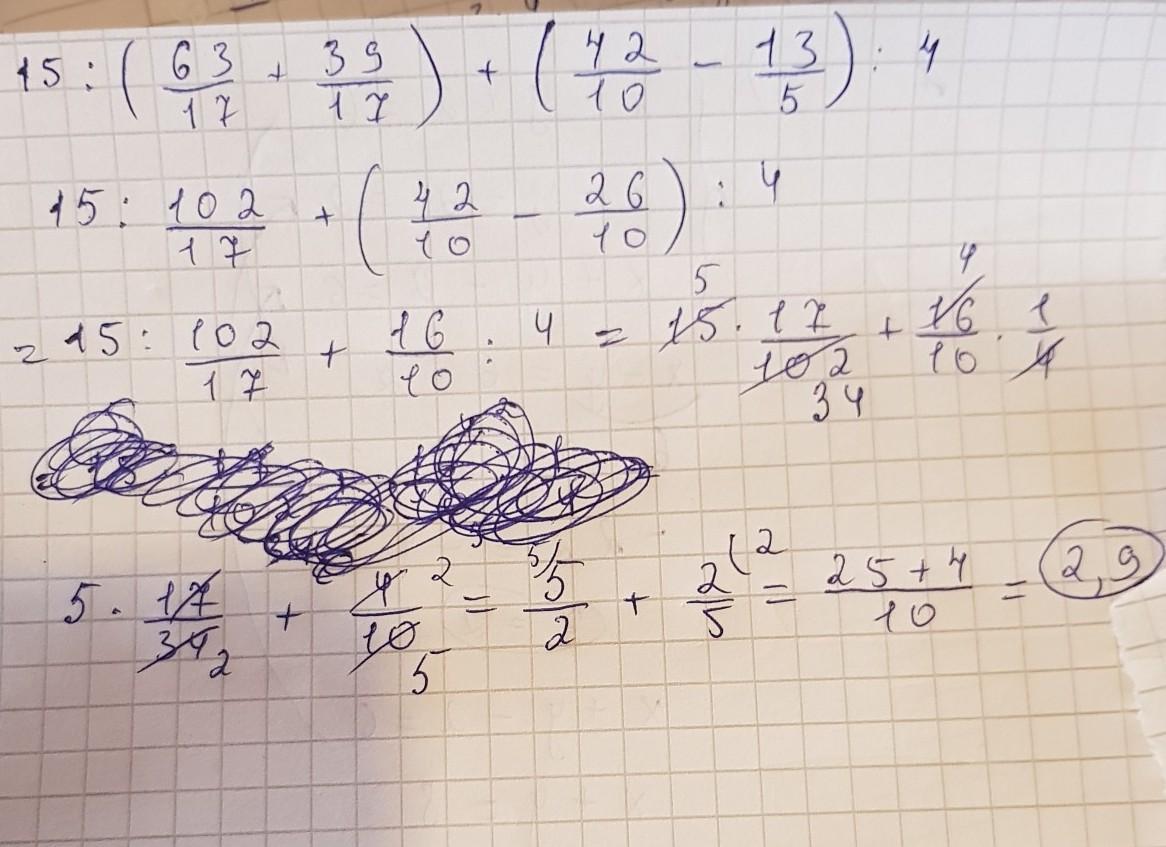 15 : (63/17 + 39/17) + (42/10 - 13/5) : 4
15 : 102/17 + (42/10 - 26/10) : 4
= 15 : 102/17 + 16/10 : 4 = 15 5 · 17/102 34 + 16 4/10 · 1/4
5 · 17/34 2 + 4 2/10 5 = 5/ 5/2 + 2/5 (2 = 25+4/10 = 2,9